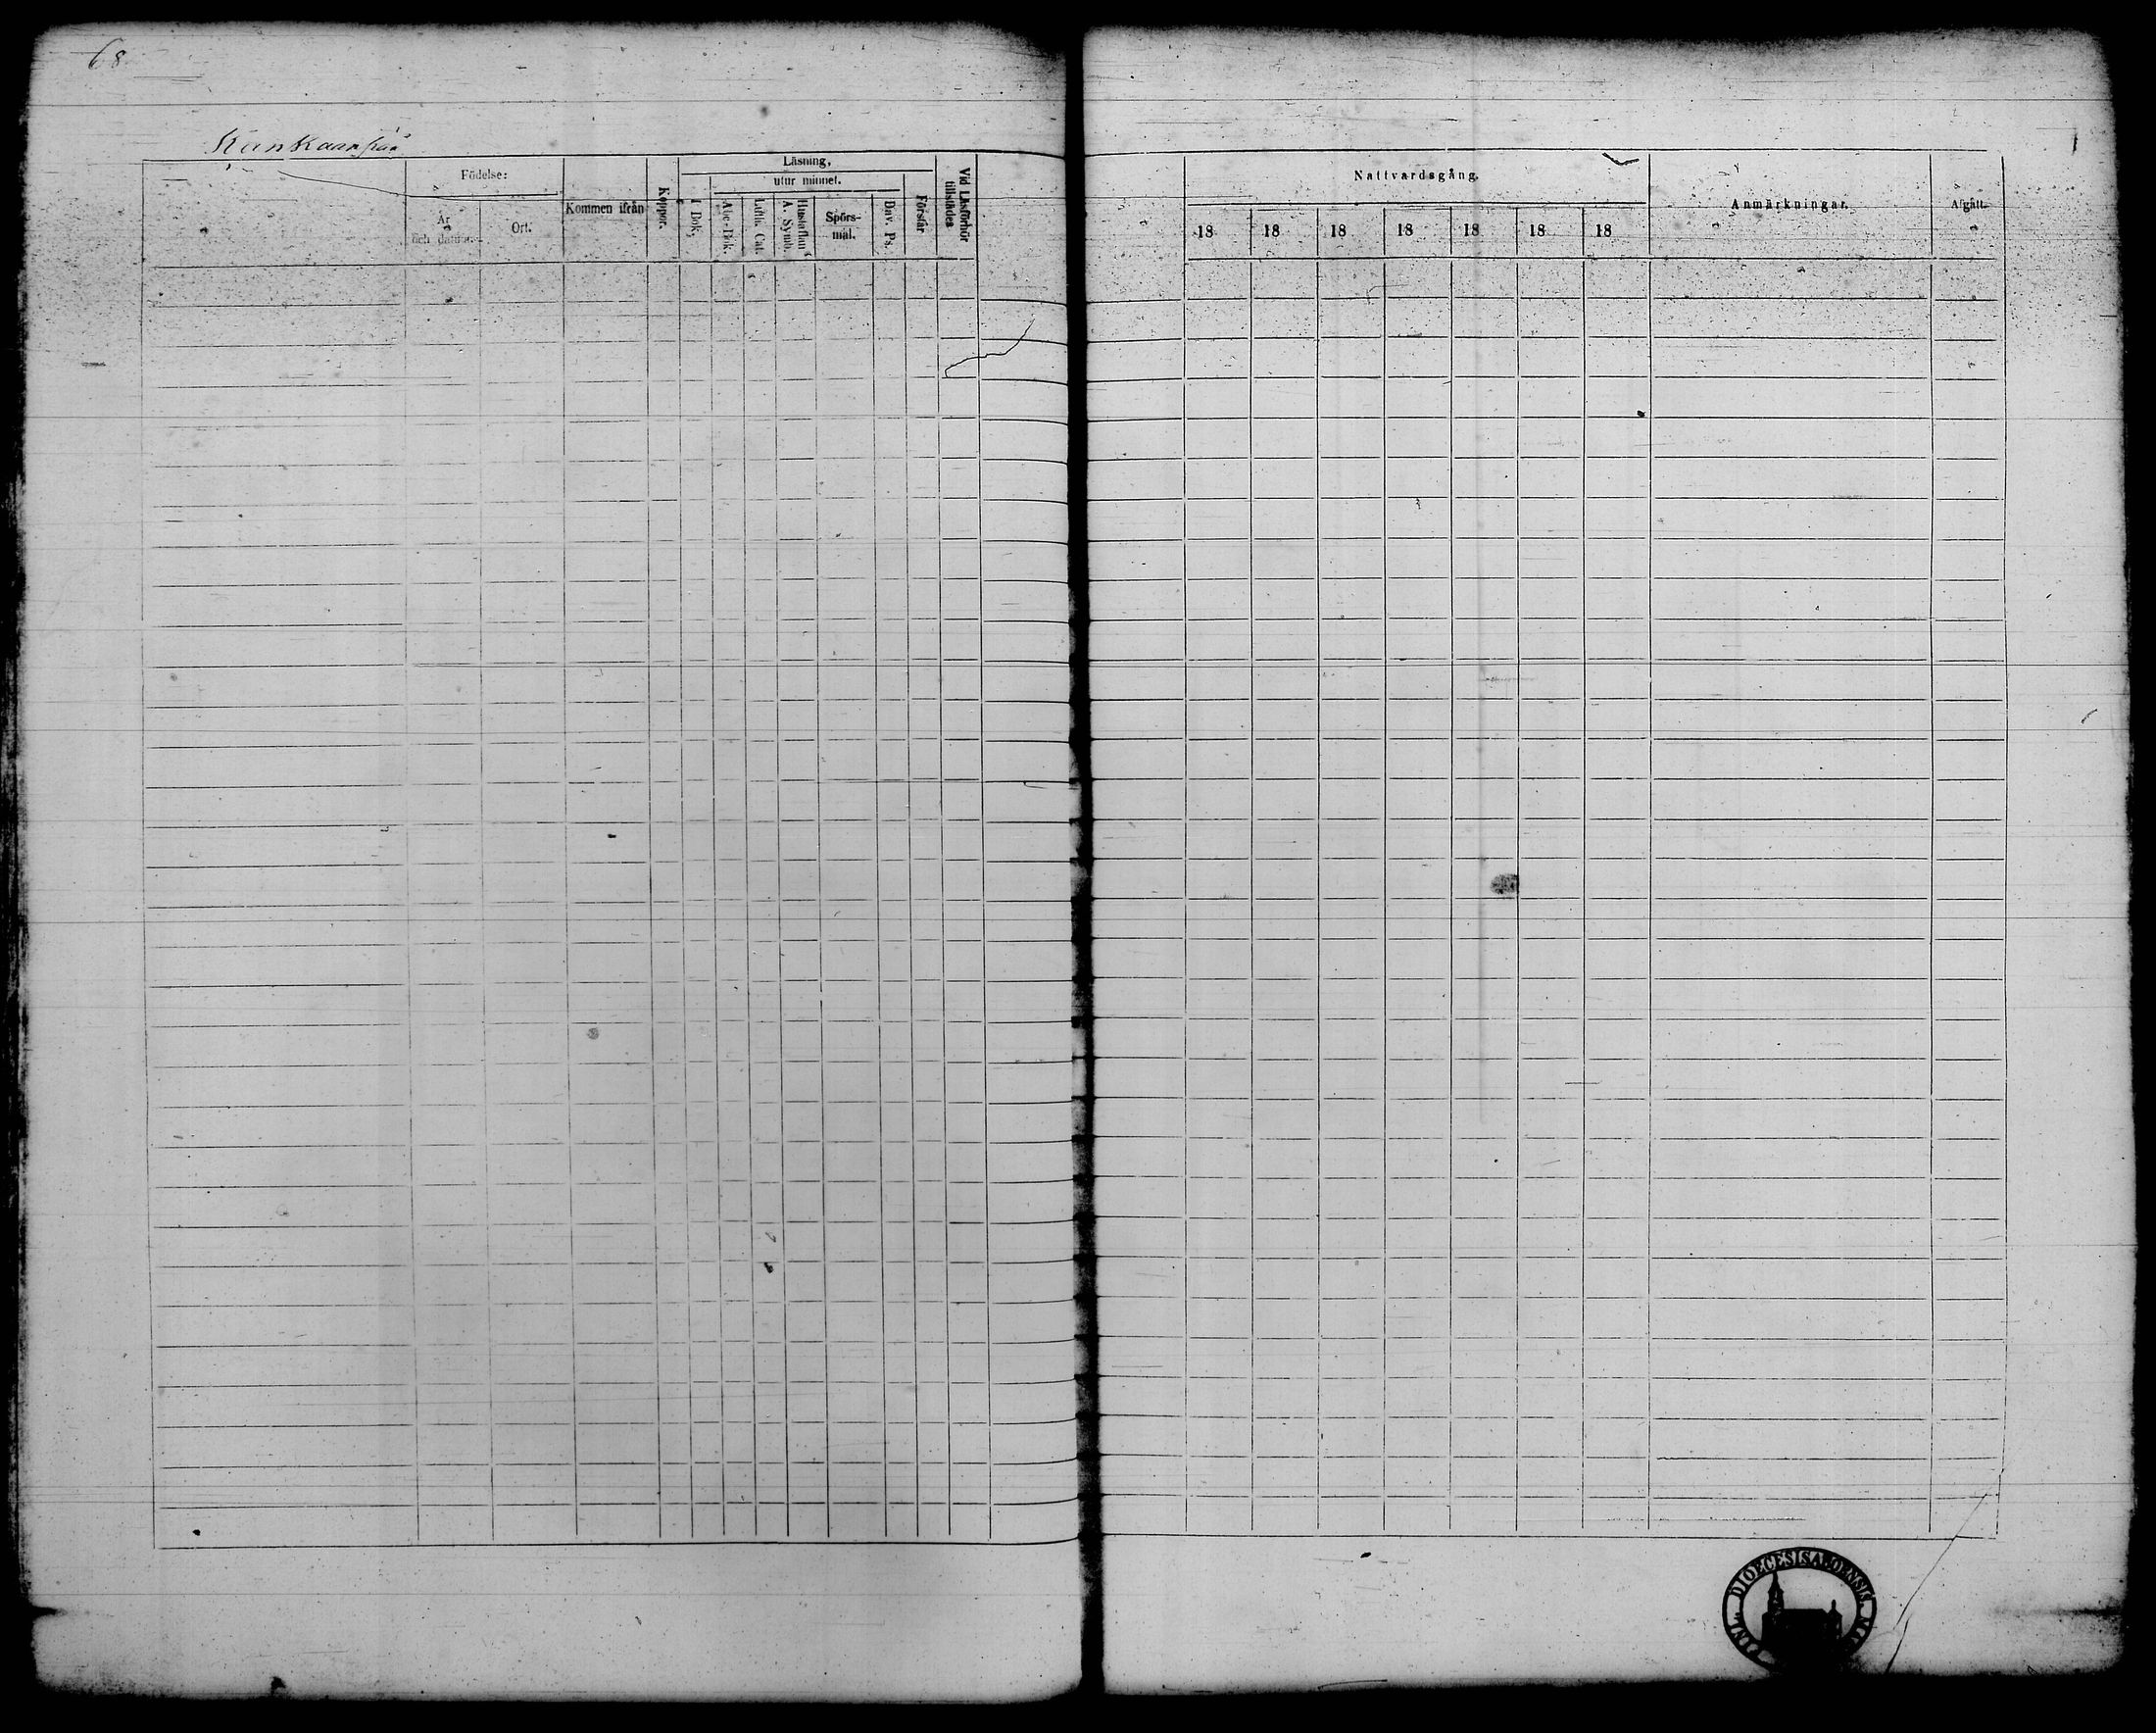 68
Kankaanpää
Födelse:
År och datum.
Ort.
Kommen ifrån
Koppor.
Läsning,
utur minnet.
i Bok.
Abc-Bok.
Luth. Cat.
Hustaflan
A. Symb.
Spörs-
mål.
Dav. Ps.
Förstår
Vid Läsförhör
tillstädes
Nattvardsgång.
18 18 18 18 18 18 18
Anmärkningar.
Afgått.
DIOECESIS ABOENSIS.